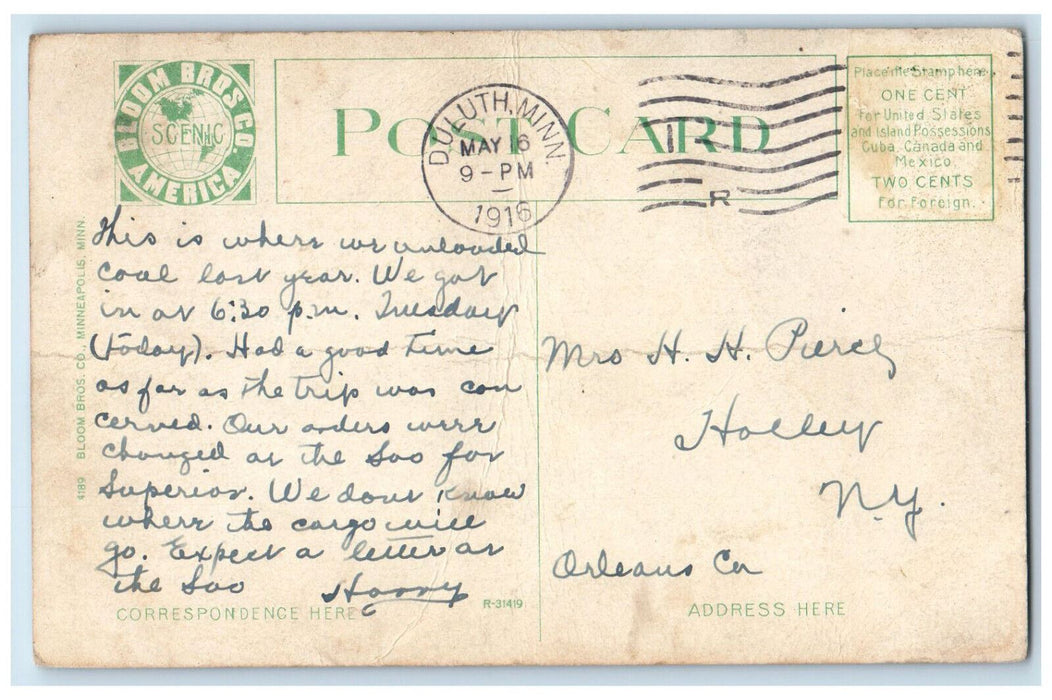 BLOOM BROS. CO.
SCENIC
AMERICA
POST CARD
DULUTH, MINN.
MAY 16
9 - PM
1916
R
Place the Stamp here
ONE CENT
For United States
and Island Possessions
Cuba, Canada and
Mexico.
TWO CENTS
For Foreign.
4189 BLOOM BROS. CO. MINNEAPOLIS, MINN.
This is where we unloaded
coal last year. We got
in at 6:30 p.m. Tuesday
(today). Had a good time
as far as the trip was con
cerned. Our orders were
changed at the Soo for
Superior. We dont know
where the cargo will
go. Expect a letter at
the Soo Harry
Mrs H. H. Pierce
Holley
N.Y.
Orleans Co
CORRESPONDENCE HERE
R-31419
ADDRESS HERE